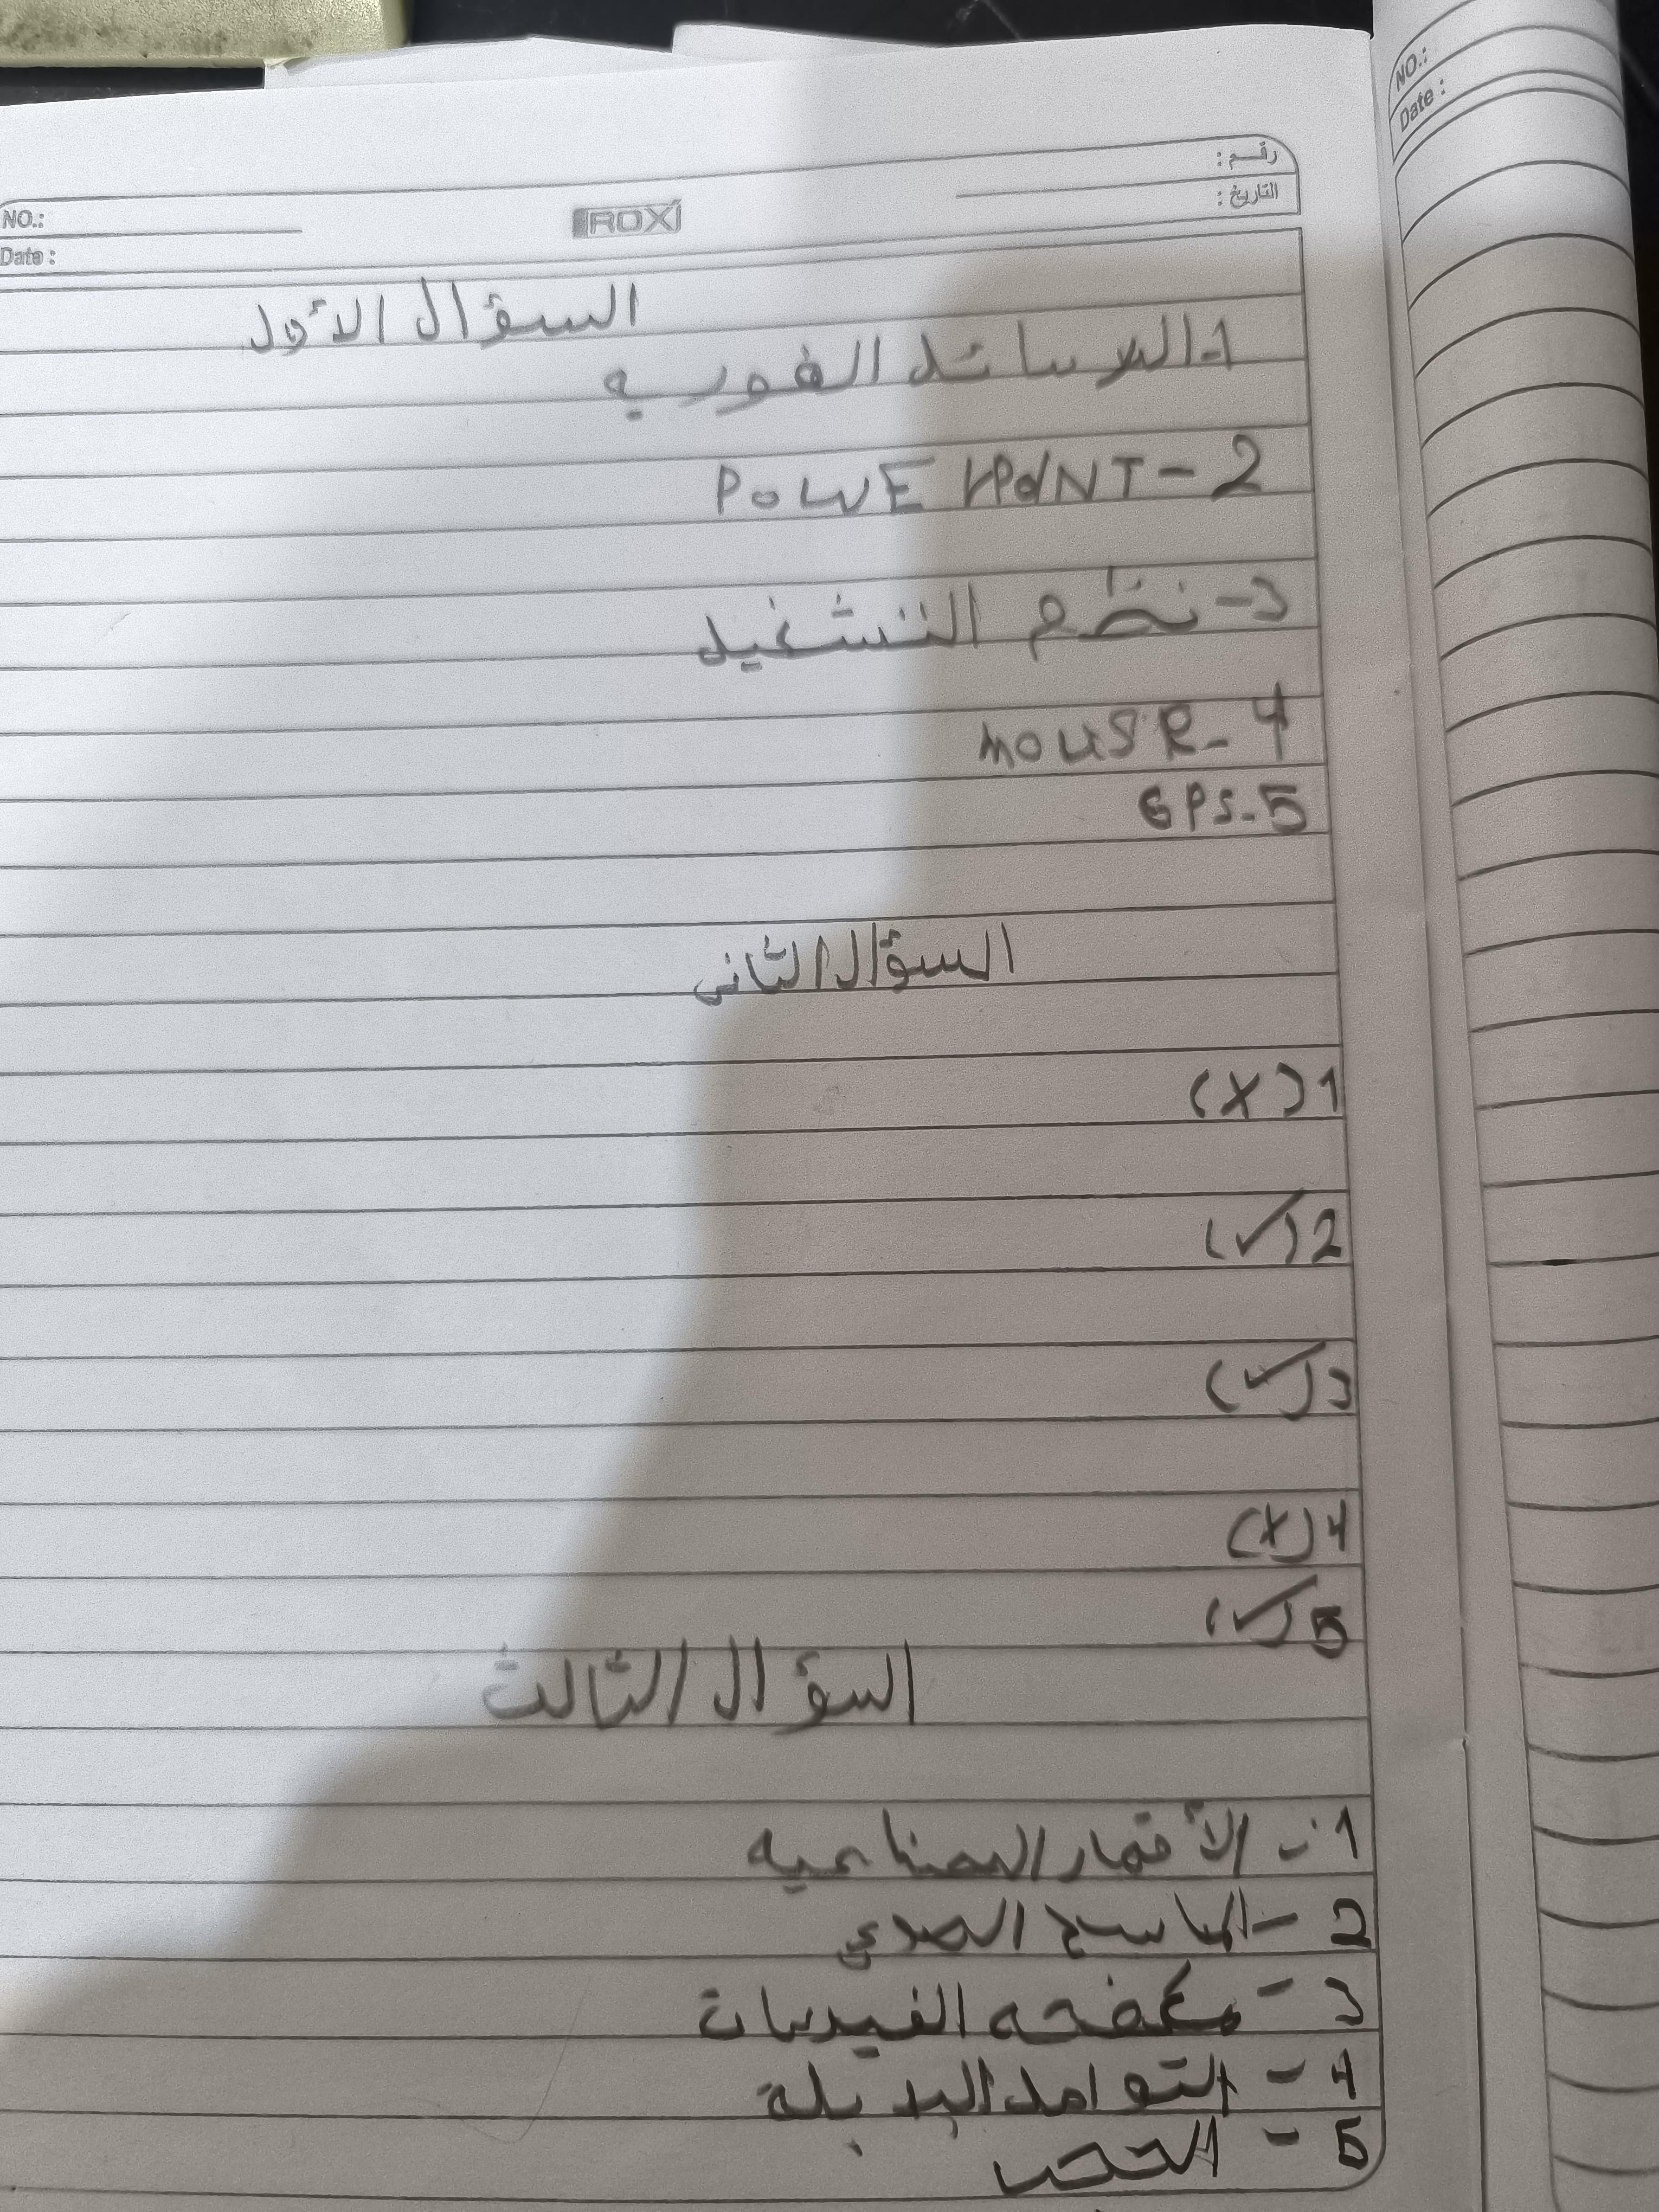 NO.:
Date :
رقـم :
التاريخ :
ROXI
NO.:
Date :
السؤال الأول
1-الرسائل الفوريه
POWE RPOINT-2
3-نظم التشغيل
mouse-4
GPS-5
السؤال الثانى
(X)1
(✓)2
(✓)3
(X)4
(✓)5
السؤال الثالث
1- الأقمار الصناعيه
2-الماسح الضوئي
3-مكفحه الفيرسات
4-التواصل البديلة
5-